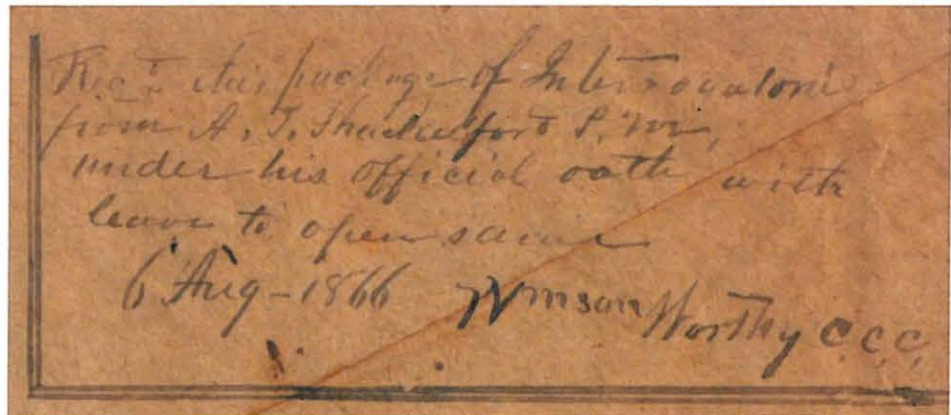 Rec'd this package of Interrogatories
from A. T. Shackelford P. M.,
under his official oath with
leave to open same
6 Aug - 1866 Worthy C.C.C.